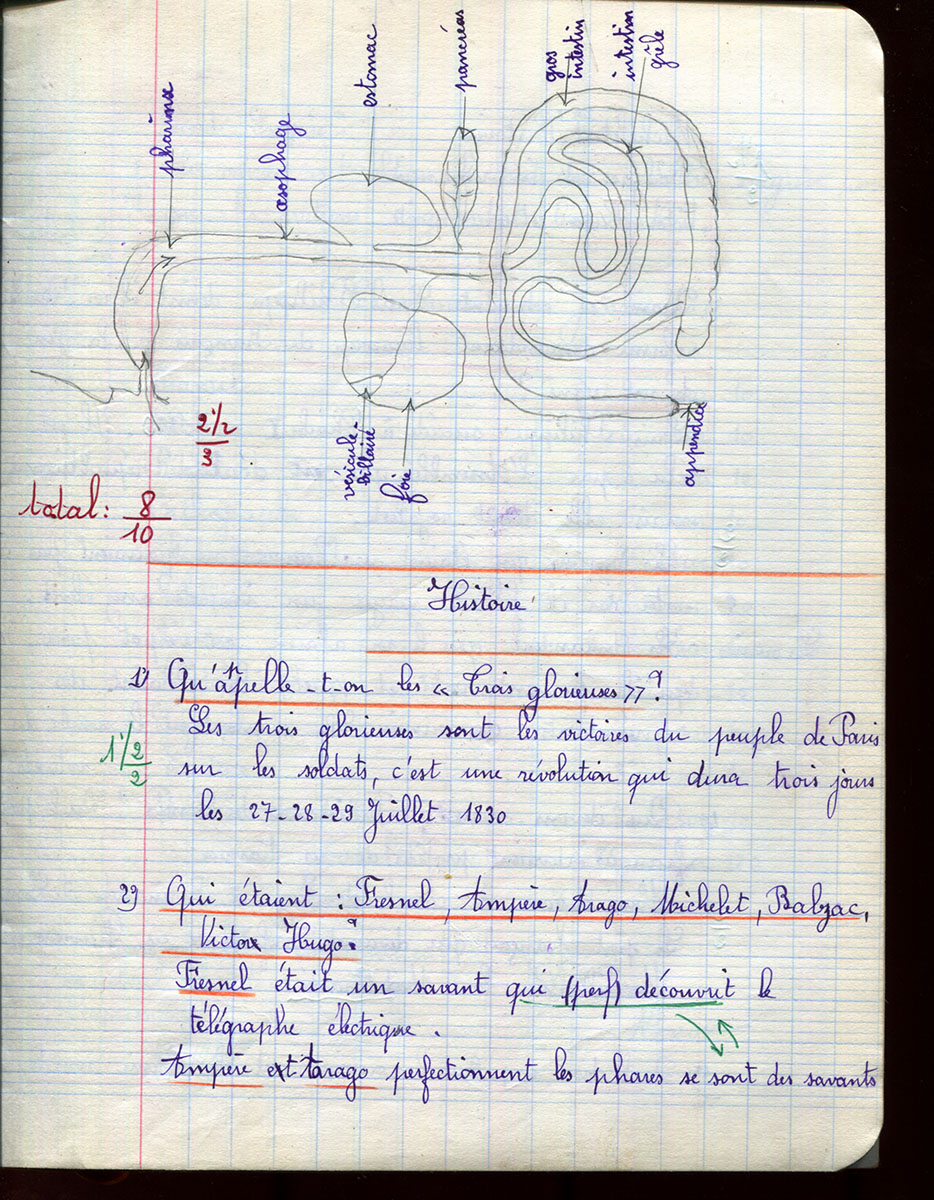 pharinx
œsophage
estomac
pancréas
gros
intestin
intestin
grêle
vésicule-
billiaire
foie
appendice
2 1/2
3
total: 8
10
Histoire
1) Qu'appelle-t-on les « Trois glorieuses »?
Les trois glorieuses sont les victoires du peuple de Paris
1 1/2
2
sur les soldats, c'est une révolution qui dura trois jours
les 27-28-29 Juillet 1830
2) Qui étaient : Fresnel, Ampère, Arago, Michelet, Balzac,
Victor Hugo?
Fresnel était un savant qui (perf) découvrit le
télégraphe électrique.
Ampère et Arago perfectionnent les phares se sont des savants